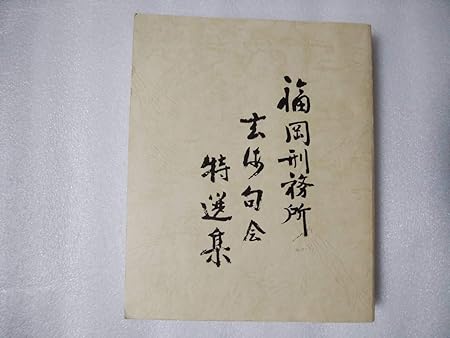 福岡刑務所
句会
特選集